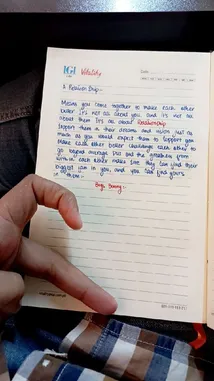 Vitality
Date:
A Relation Ship:-
Means you come together to make each other
better It's not all about you, and It's not all
about them It's all about Relationship
Support them in their dreams and vision just as
much as you would expect them to support you
Make each other better challenge each other to
go beyond average. Pull out the greatness from
within each other make sure they can find their
biggest in you, and you can find yours
in them:-